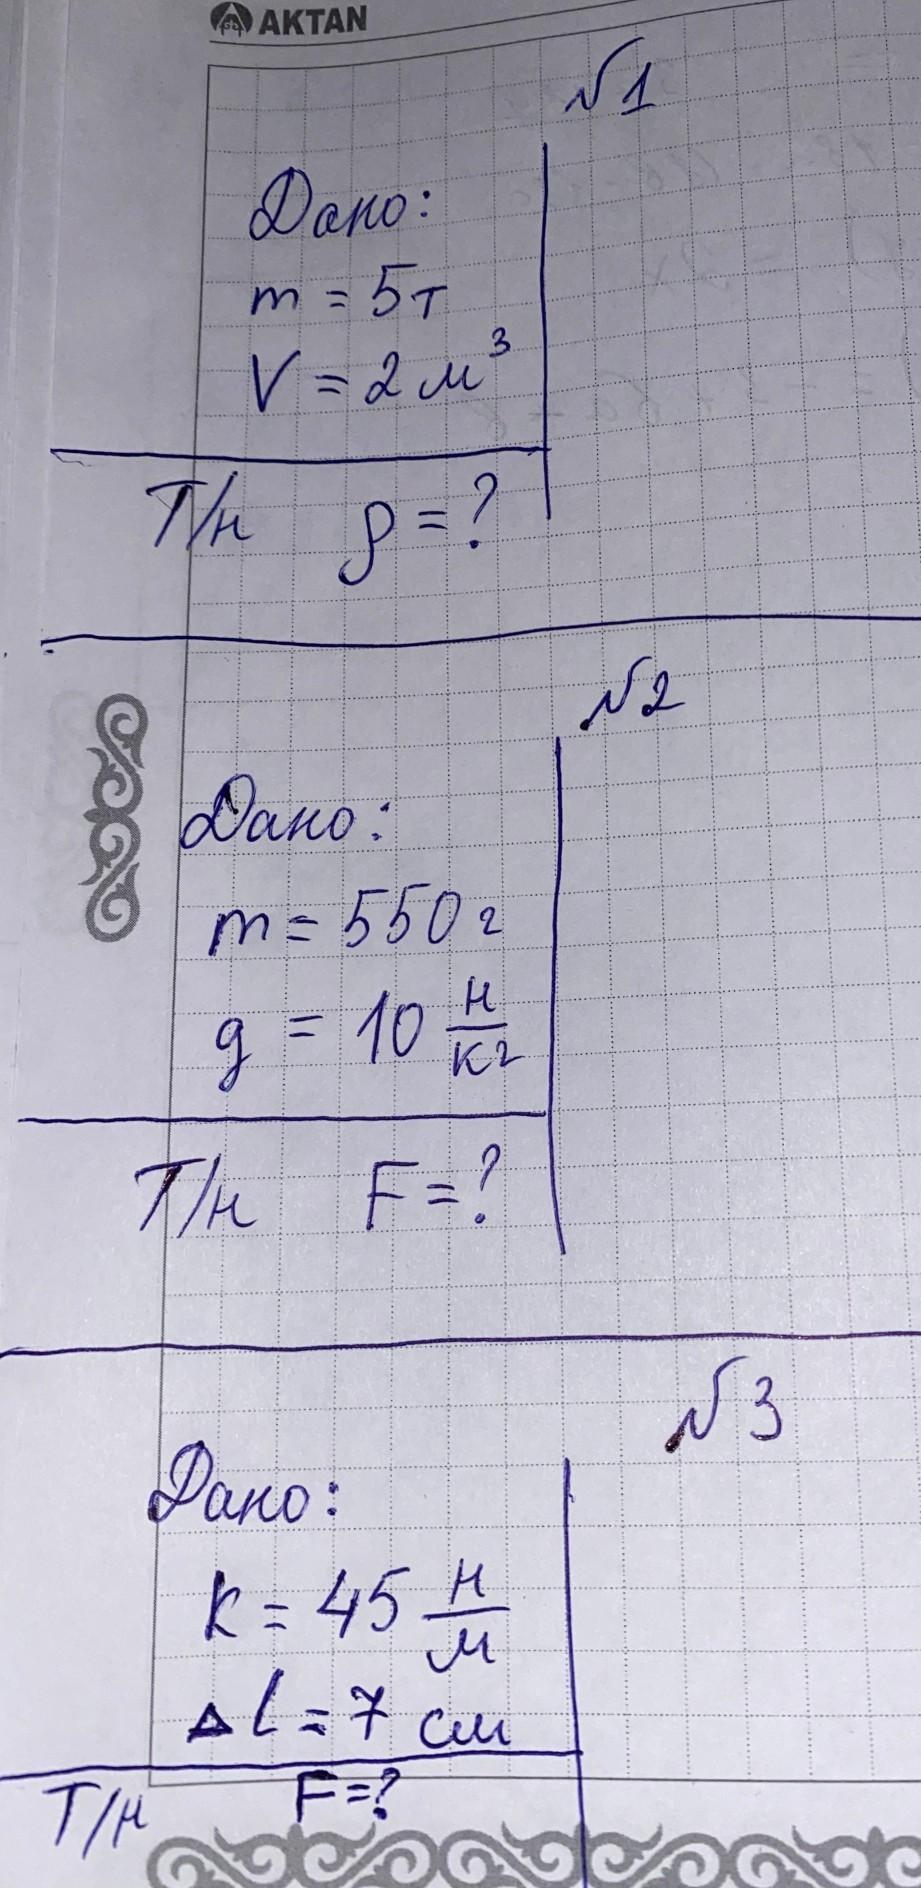 AKTAN
№1
Дано:
m = 5т
V = 2 м³
Т/н ρ = ?
№2
Дано:
m = 550 г
g = 10 н/кг
Т/н F = ?
№3
Дано:
k = 45 н/м
Δl = 7 см
Т/н F = ?